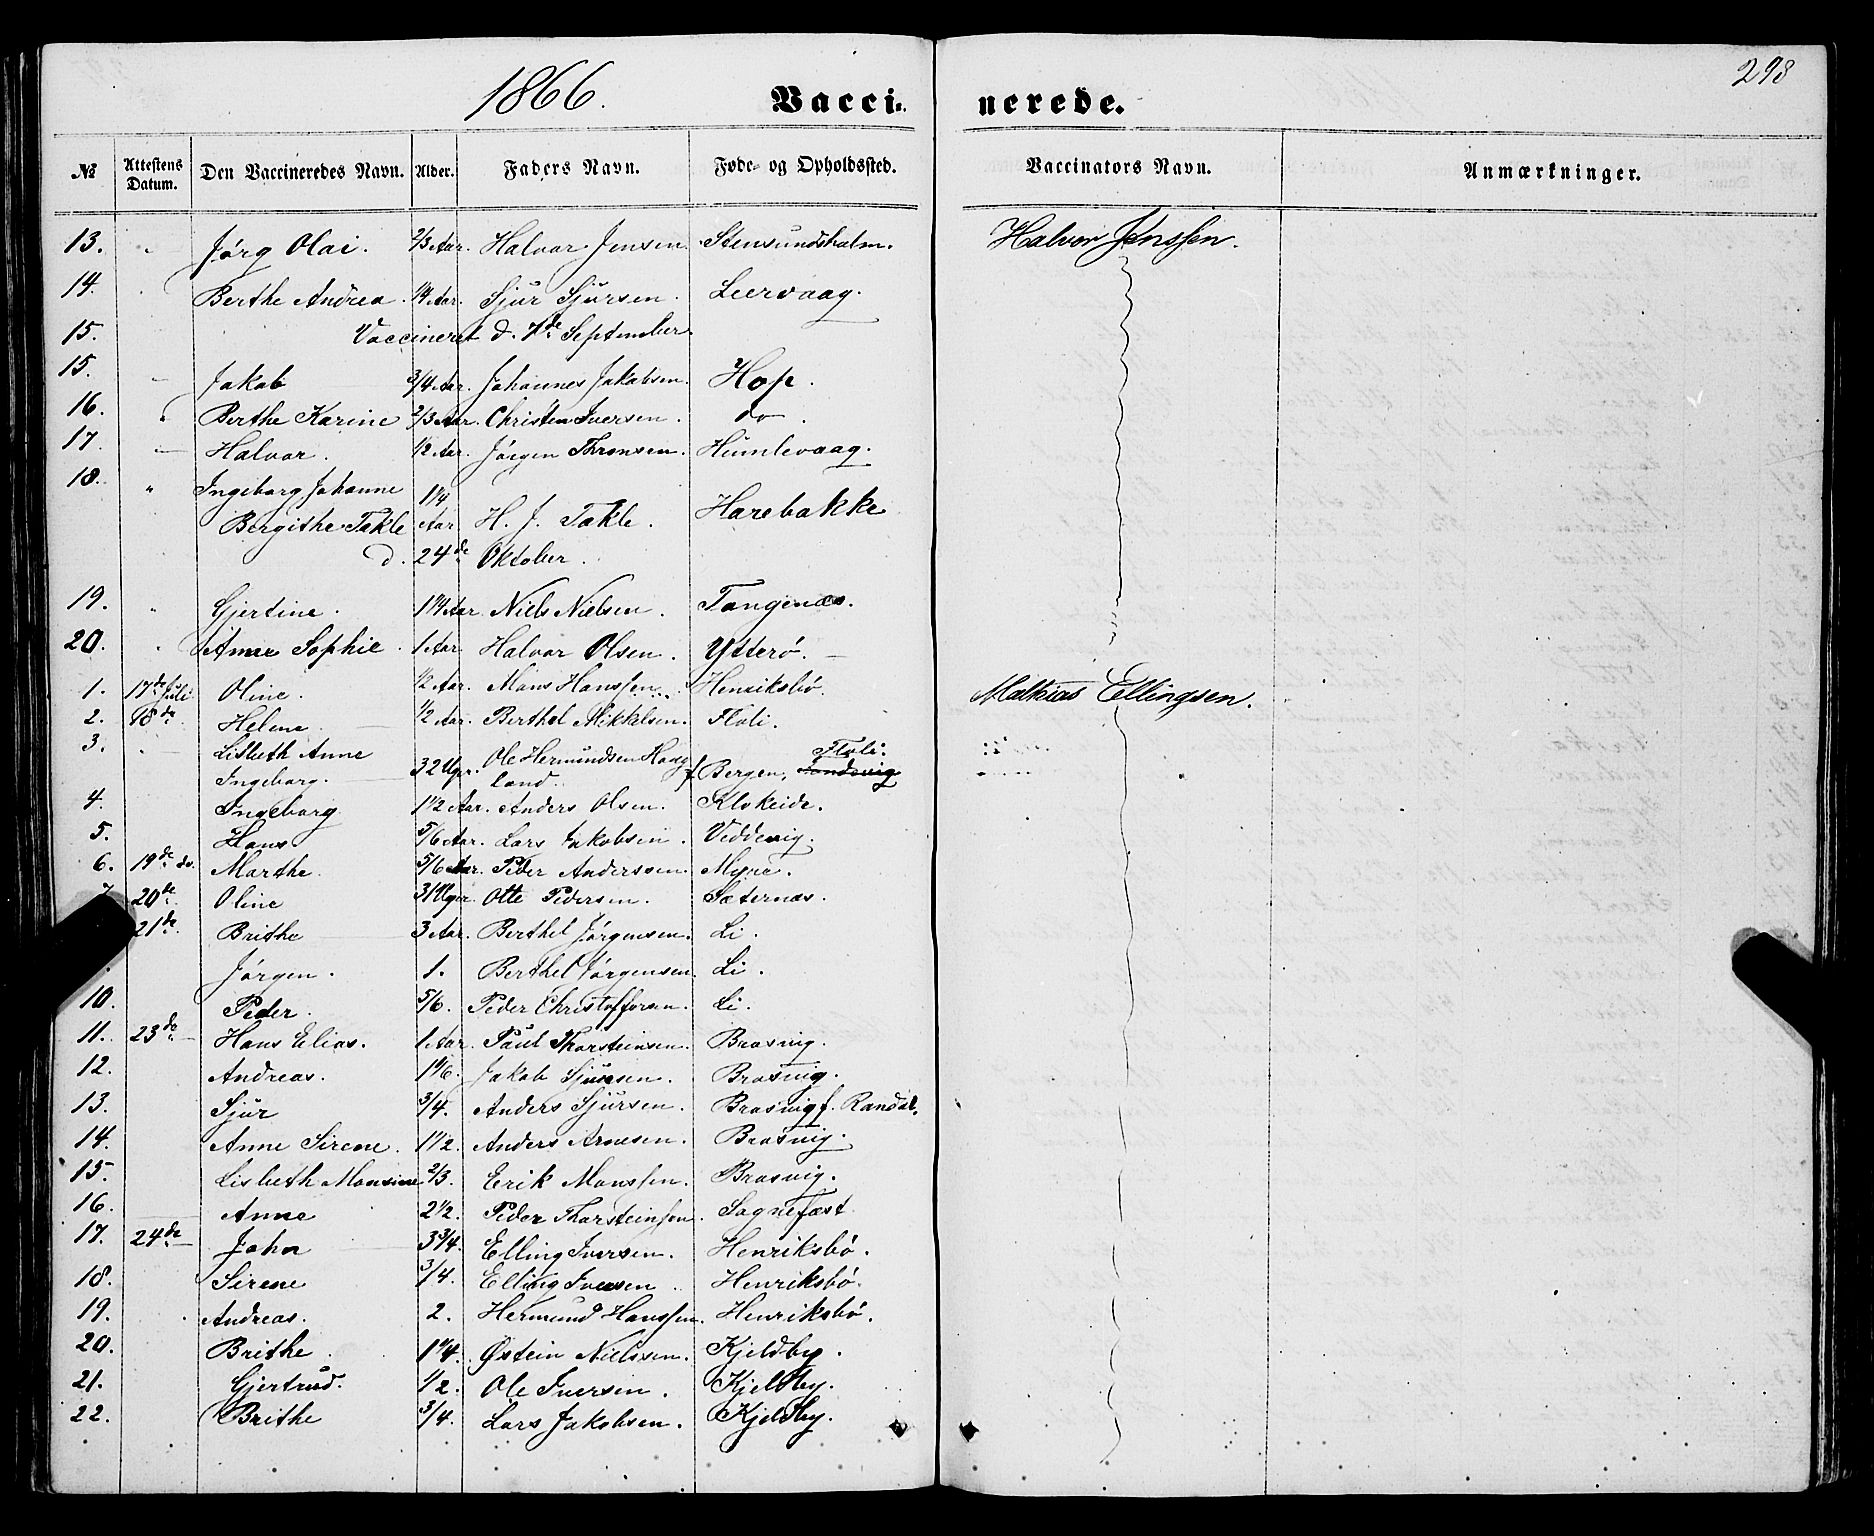 298
1866. Vacci- nerede.
№ Attestens Datum. Den Vaccineredes Navn. Alder. Faders Navn. Føde- og Opholdssted. Vaccinators Navn. Anmærkninger.
13. " Jørg Olai. 2/3 Aar. Halvor Jensen Stensundsholm. Halvor Jenssen.
14. " Berthe Andrea. 1/4 Aar. Sjur Sjursen. Leervaag.
15. Vaccineret d. 7de September
15. " Jakob 3/4 Aar. Johannes Jakobsen. Hop.
16. " Berthe Karine 2/3 Aar. Christen Iversen. do.
17. — Halvor. 1/2 Aar. Jørgen Thronsen. Humlevaag.
18. " Ingeborg Johanne
Bergithe Takle 1 1/4 Aar H. J. Takle. Harebakke
d. 24de Oktober.
19. " Gjertine. 1 1/4 Aar Niels Nielsen. Tangenæs.
20. " Anne Sophie. 1 Aar Halvor Olsen. Ytterö. —
1. 17de Juli Oline. 1/2 Aar. Mons Hanssen. Henriksbö. Mathias Ellingsen.
2. 18de Helene. 1/2 Aar. Berthel Mikkelsen. Floli.
3. " Lisbeth Anne
Ingeborg. 32 Uger. Ole Hermundsen Haugland. f Bergen, Sandvig Floli.
4. Ingeborg 1 1/2 Aar. Anders Olsen. Klokeide.
5. Hans 5/6 Aar. Lars Jakobsen. Veddevig.
6. 19de do. Marthe. 5/6 Aar. Peder Anderssen. Myre.
7. 20de Oline 31 Uger. Otte Pedersen. Sæternæs.
21de Brithe 3 Aar. Berthel Jørgensen. Li.
Jørgen. 1. Berthel Jørgensen. Li.
10. Peder. 5/6. Peder Christoffersen. Li.
11. 23de Hans Elias. 1 Aar. Paul Thorsteinsen. Brosvig.
12. Andreas. 1 1/6. Jakob Sjursen. Brosvig.
13. Sjur 3/4. Anders Sjursen. Brosvig f. Randal.
14. Anne Sirene. 1 1/2. Anders Arnesen. Brosvig.
15. Lisbeth Monsine 2/3. Erik Monssen. Brosvig.
16. Anne 2 1/2. Peder Thorsteinssen. Sognefæst
17. 24de John 3 3/4. Elling Iversen. Henriksbö.
18. Sirene 3/4. Elling Iversen Henriksbö.
19. Andreas. 2. Hermund Hanssen. Henriksbö.
20. Brithe. 1 1/4. Østein Nielssen. Kjeldby.
21. Gjertrud. 1/2. Ole Iversen. Kjeldby.
22. Brithe 3/4. Lars Jakobsen. Kjeldby.